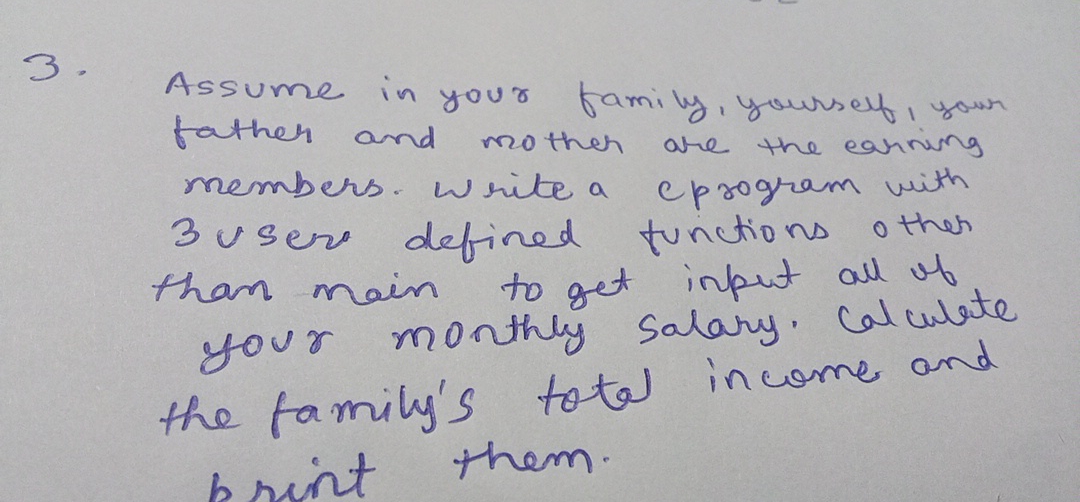 3.
Assume in your family, yourself, your
father and mother are the earning
members. Write a cprogram with
3 user defined functions other
than main to get input all of
your monthly salary. Calculate
the family's total income and
print them.